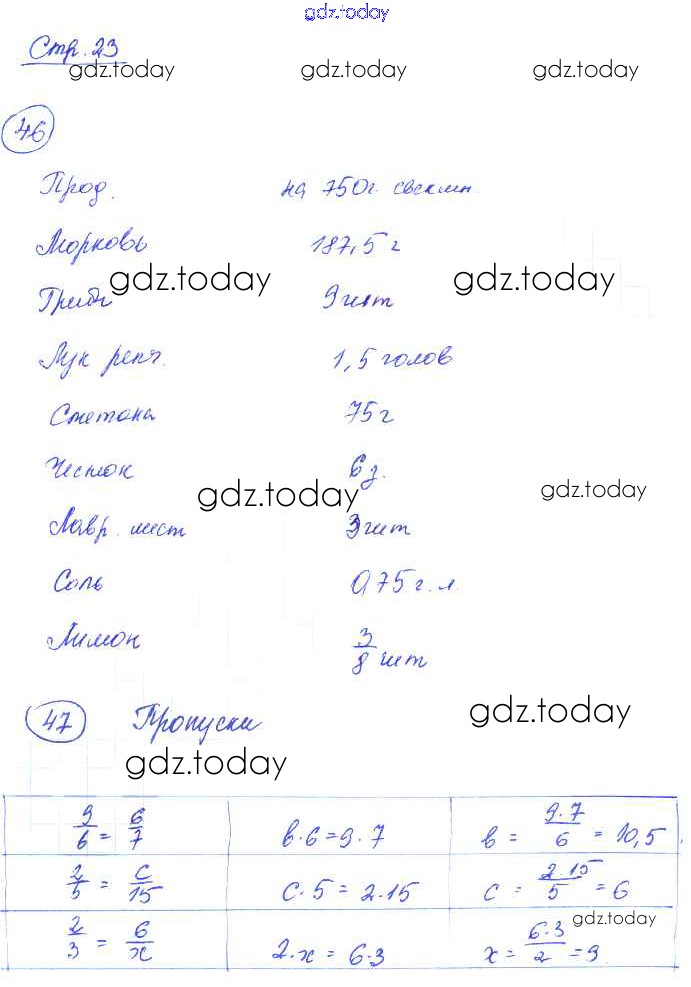 gdz.today
Стр. 23
gdz.today gdz.today gdz.today
46
Прод. на 750г. свеклы
Морковь 187,5 г
gdz.today gdz.today
Грибы 9 шт
Лук репч. 1,5 голов
Сметана 75 г
Чеснок 6 д.
gdz.today gdz.today
Лавр. лист 3 шт
Соль 0,75 г. л.
Лимон 3/8 шт
47 Пропуски
gdz.today
gdz.today
9/6 = 6/7 в·6=9·7 в = 9·7/6 = 10,5
2/5 = с/15 с·5=2·15 с = 2·15/5 = 6
gdz.today
2/3 = 6/х 2·х = 6·3 х = 6·3/2 = 9